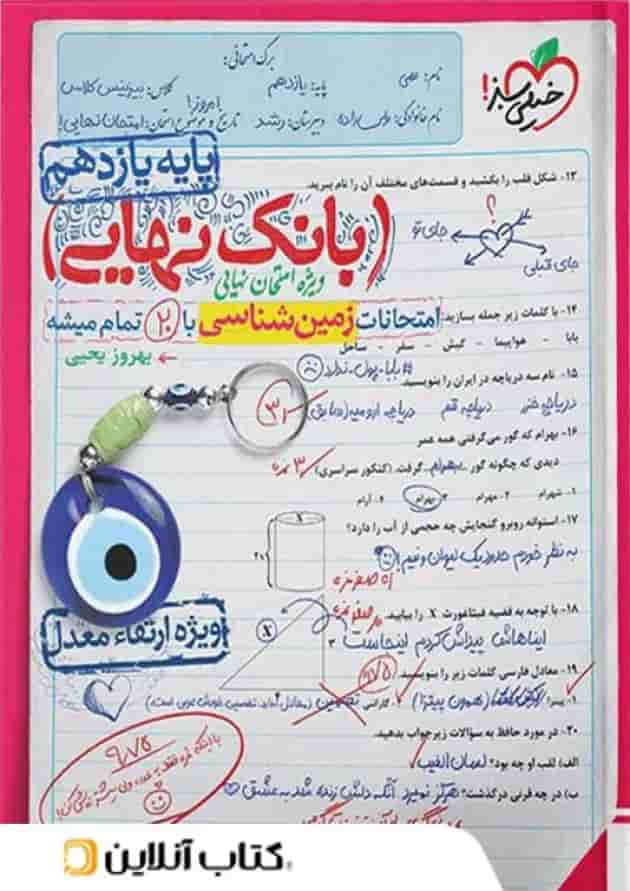 خیلی سبز!
برگ امتحانی:
نام:
پایه: یازدهم
کلاس: بیزینس کلاس
نام خانوادگی:
دبیرستان: رشد
تاریخ و موضوع امتحان: امتحان نهایی!
امروز!
پایه یازدهم
۱۳- شکل قلب را بکشید و قسمت‌های مختلف آن را نام ببرید.
(بانک نهایی)
؟
جای تو
جای قبلی
ویژه امتحان نهایی
۱۴- با کلمات زیر جمله بسازید:
امتحانات زمین‌شناسی با ۲۰ تمام میشه
بابا - هواپیما - کیش - سفر - ساحل
← بهروز یحیی
# بابا - پول - ندارد
۱۵- نام سه دریاچه در ایران را بنویسید.
دریاچه خزر دریاچه قم دریاچه ارومیه (سابق)
۱۶- بهرام که گور می‌گرفتی همه عمر
دیدی که چگونه گور بهرام گرفت. (کنکور سراسری)
۳ نمره
۱- شهرام ۲- مهرام ۳- بهرام ۴- آرام
۱۷- استوانه روبرو گنجایش چه حجمی از آب را دارد؟
x
۲۰
به نظر خودم حدود یک لیوان و نیم!
۱۸- با توجه به قضیه فیثاغورث X را بیابید.
X
۳
ایناهاش پیداش کردم اینجاست
ویژه ارتقاء معدل
۱۹- معادل فارسی کلمات زیر را بنویسید.
۹/۷۵
۱- پیتزا
(همون پیتزا)
۲- گارانتی
۲۰- در مورد حافظ به سؤالات زیر جواب بدهید.
الف) لقب او چه بود؟ لسان الغیب
ب) در چه قرنی درگذشت؟ هرگز نمیرد آنکه دلش زنده شد به عشق
۹/۷۵
کتاب آنلاین